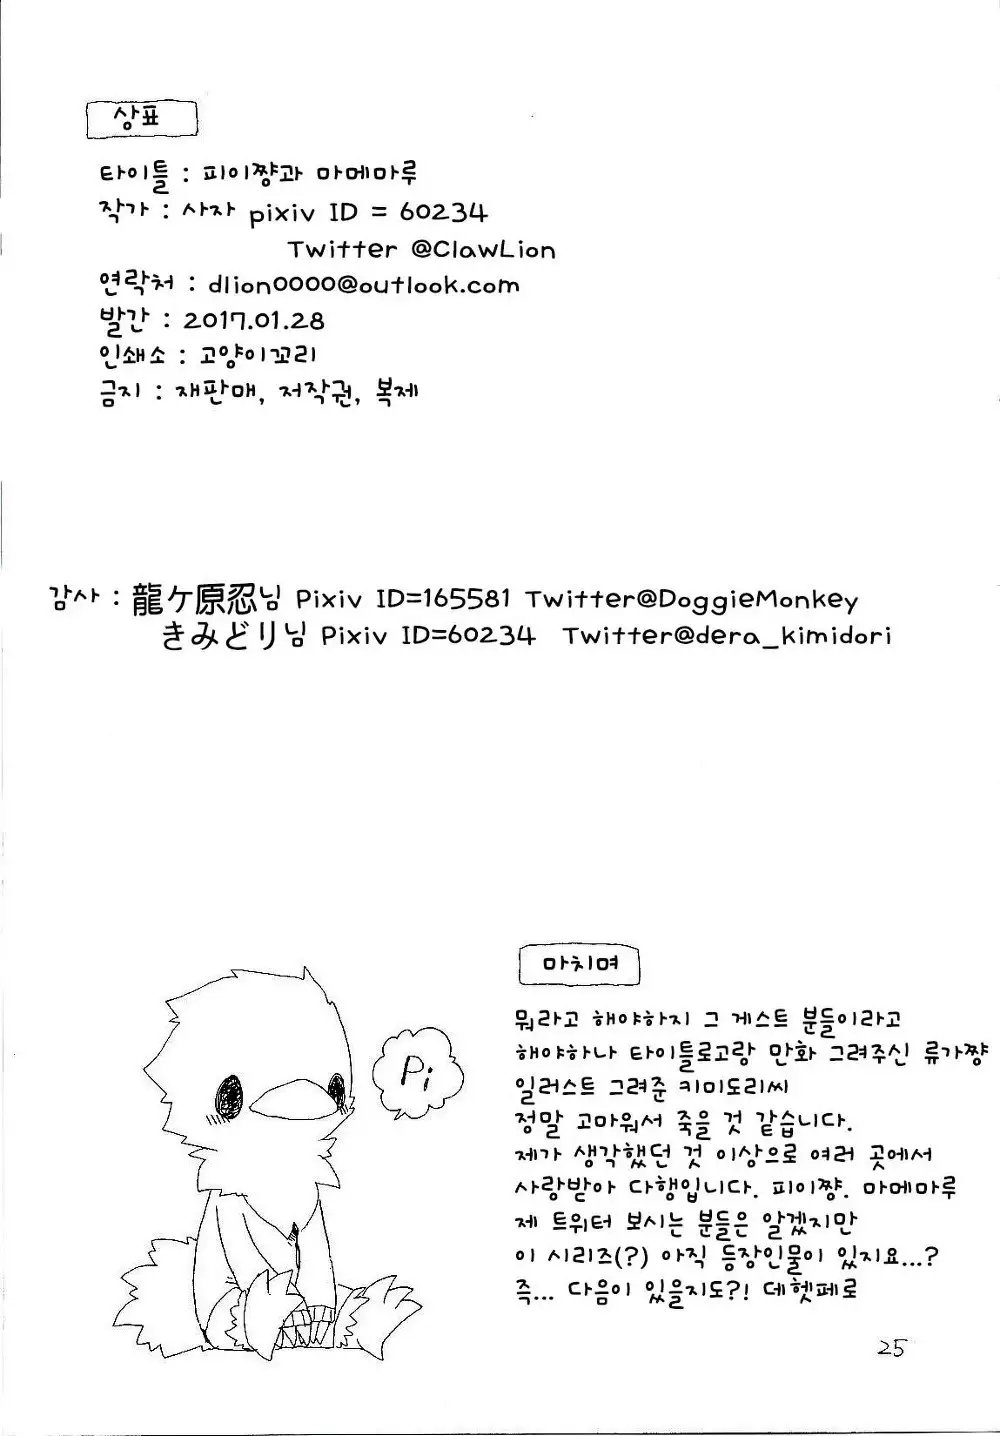 상표
타이틀 : 피이쨩과 마메마루
작가 : 사자 pixiv ID = 60234
Twitter @ClawLion
연락처 : dlion0000@outlook.com
발간 : 2017.01.28
인쇄소 : 고양이꼬리
금지 : 재판매, 저작권, 복제
감사 : 龍ケ原忍님 Pixiv ID=165581 Twitter@DoggieMonkey
きみどり님 Pixiv ID=60234 Twitter@dera_kimidori
마치며
뭐라고 해야하지 그 게스트 분들이라고
해야하나 타이틀로고랑 만화 그려주신 류가쨩
Pi
일러스트 그려준 키미도리씨
정말 고마워서 죽을 것 같습니다.
제가 생각했던 것 이상으로 여러 곳에서
사랑받아 다행입니다. 피이쨩. 마메마루
제 트위터 보시는 분들은 알겠지만
이 시리즈(?) 아직 등장인물이 있지요...?
즉... 다음이 있을지도?! 데헷페로
25